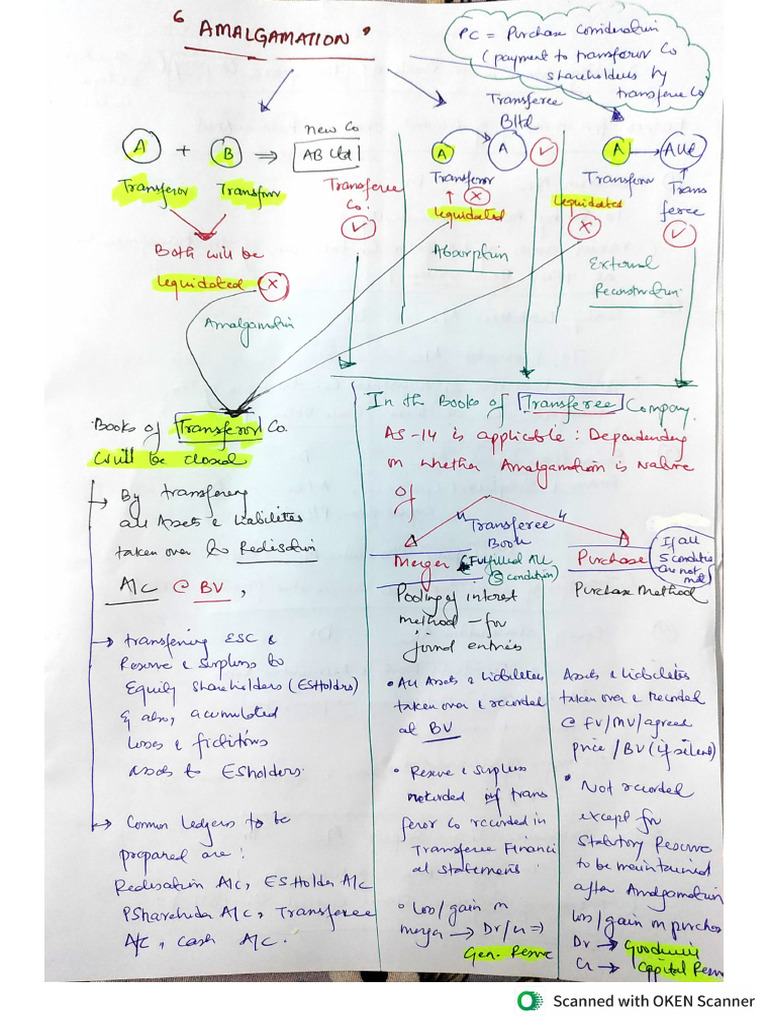 " AMALGAMATION "
PC = Purchase Consideration
(payment to transferor Co
shareholders by
transferee Co
A + B ⇒
new Co
AB Ltd
Transferor Transferor
Transferee
Co.
Both will be
Liquidated X
Amalgamation
Transferee
B ltd
A A
Transferor
X
Liquidated
Absorption
A
Transferor
Transferee
Liquidated
X
External
Reconstruction
Books of Transferor Co.
will be closed
→ By transfering
all Assets & Liabilities
taken over to Realisation
A/c @ BV,
→ transfering ESC &
Reserve & Surpluss to
Equity Shareholders (ESHolders)
& also, acumulated
losses & fictitious
assets to ESholders.
→ Common ledgers to be
prepared are:
Realisation A/c, ESHolder A/c
PShareholder A/c, Transferee
A/c, Cash A/c.
In the Books of Transferee Company
AS-14 is applicable: Dependending
on whether Amalgamation is Nature
of
Transferee
Book
Merger (Fulfilled All
5 condition)
Pooling of interest
method - for
journal entries
• All Assets & Liabilities
taken over & recorded
at BV
• Reserve & Surpluss
of trans
feror Co recorded in
Transferee Financi
al statements.
• Loss/gain on
merger → Dr/Cr ⇒
Gen. Reserve
Purchase
If all
5 conditions
are not
met
Purchase Method
Assets & Liabilities
taken over & recorded
@ FV/MV/agreed
price/BV (if silent)
• Not recorded
except for
Statutory Reserve
to be maintained
after Amalgamation
Loss/gain on purchase
Dr → Goodwill
Cr → Capital Reserve
Scanned with OKEN Scanner